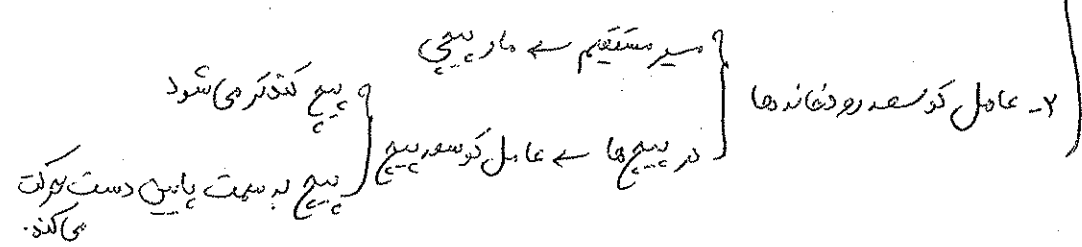 ۲- عامل توسعه رودخانه‌ها
مسیر مستقیم ← مارپیچی
در پیچ‌ها ← عامل توسعه پیچ
پیچ تندتر می‌شود
پیچ به سمت پایین دست حرکت
می‌کند.